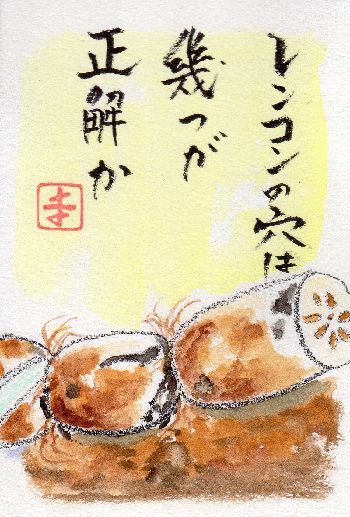 レンコンの穴は
幾つが
正解か